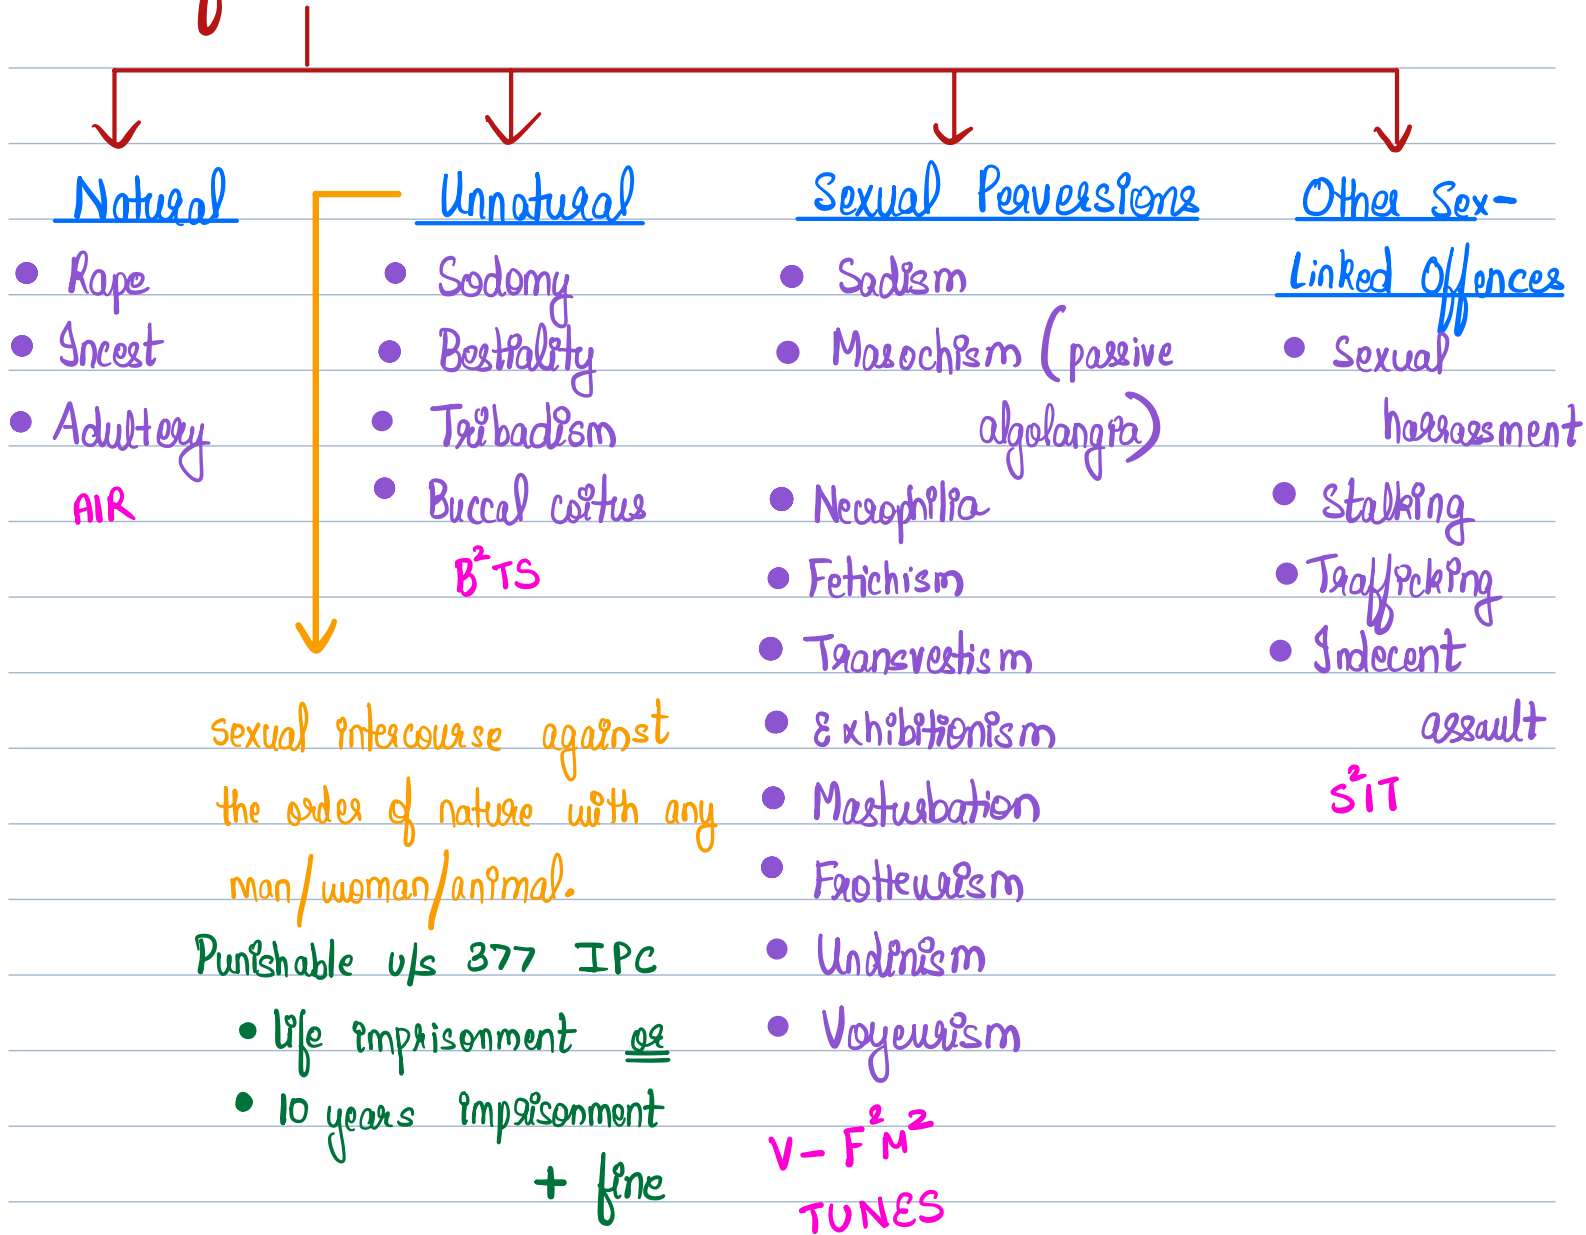 Natural
• Rape
• Incest
• Adultery
AIR
Unnatural
• Sodomy
• Bestiality
• Tribadism
• Buccal coitus
B²TS
sexual intercourse against
the order of nature with any
man/woman/animal.
Punishable u/s 377 IPC
• life imprisonment or
• 10 years imprisonment
+ fine
Sexual Perversions
• Sadism
• Masochism (passive
algolangia)
• Necrophilia
• Fetichism
• Transvestism
• Exhibitionism
• Masturbation
• Frotteurism
• Undinism
• Voyeurism
V - F²M²
TUNES
Other Sex-
Linked Offences
• Sexual
harrassment
• Stalking
• Trafficking
• Indecent
assault
S²IT